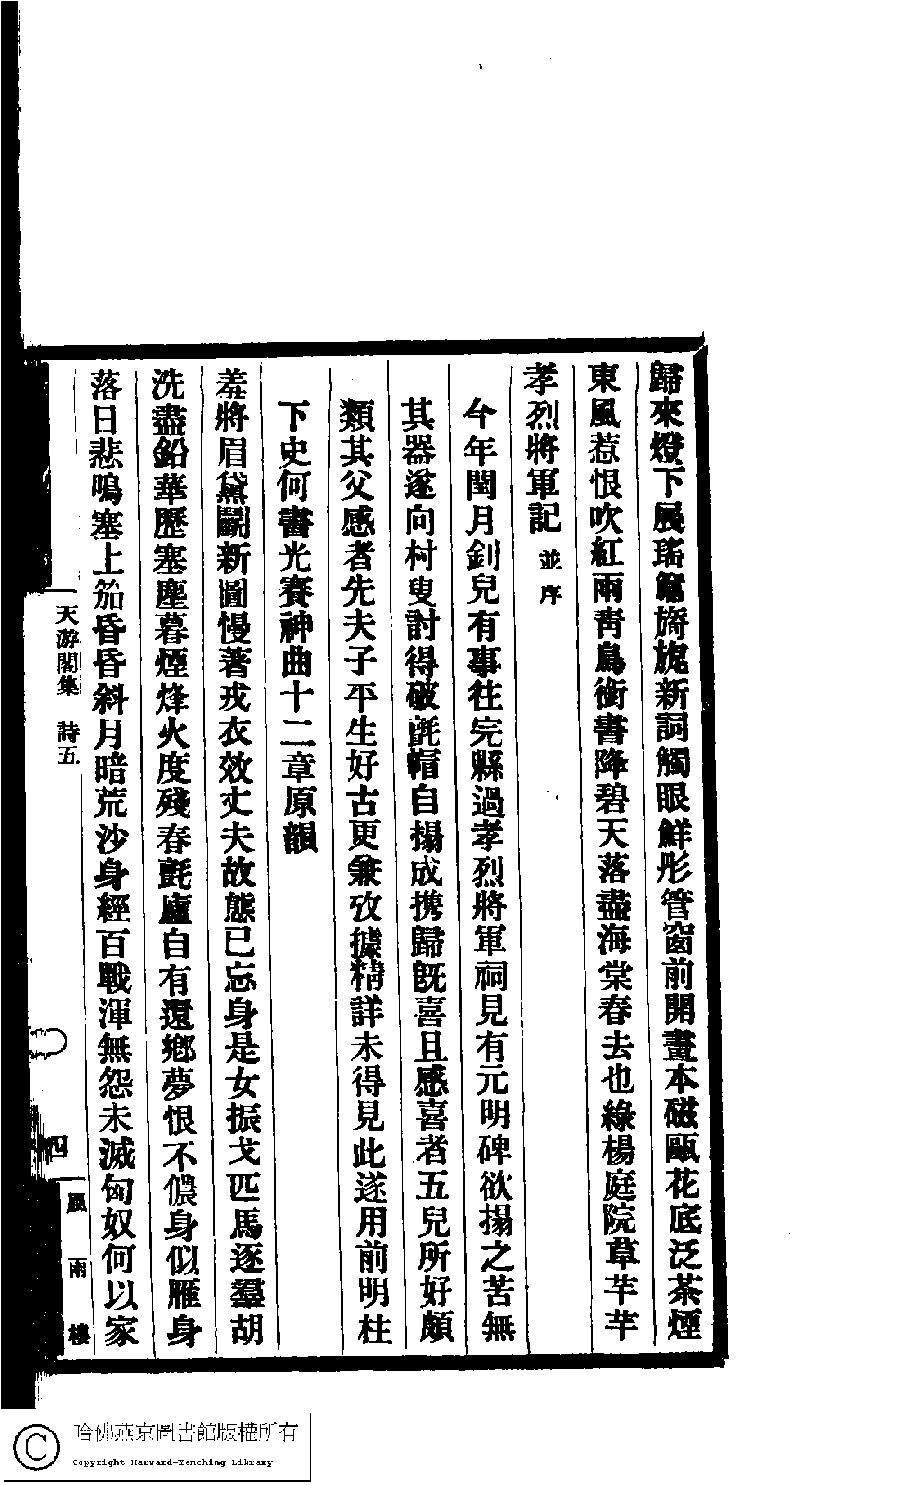 歸來燈下展瑤籤旖旎新詞觸眼鮮彤管窗前開畫本磁甌花底泛茶煙
東風惹恨吹紅雨靑鳥銜書降碧天落盡海棠春去也綠楊庭院草芊芊
孝烈將軍記 並序
今年閏月釗兒有事往完縣過孝烈將軍祠見有元明碑欲搨之苦無
其器遂向村叟討得破氈帽自搨成携歸旣喜且感喜者五兒所好頗
類其父感者先夫子平生好古更兼攷據精詳未得見此遂用前明柱
下史何書光賽神曲十二章原韻
羞將眉黛鬭新圖慢著戎衣效丈夫故態已忘身是女振戈匹馬逐羣胡
洗盡鉛華歷塞塵暮煙烽火度殘春氈廬自有還鄉夢恨不儂身似雁身
落日悲鳴塞上笳昏昏斜月暗荒沙身經百戰渾無怨未滅匈奴何以家
天游閣集 詩五
四
風雨樓
哈佛燕京圖書館版權所有
Copyright Harvard-Yenching Library